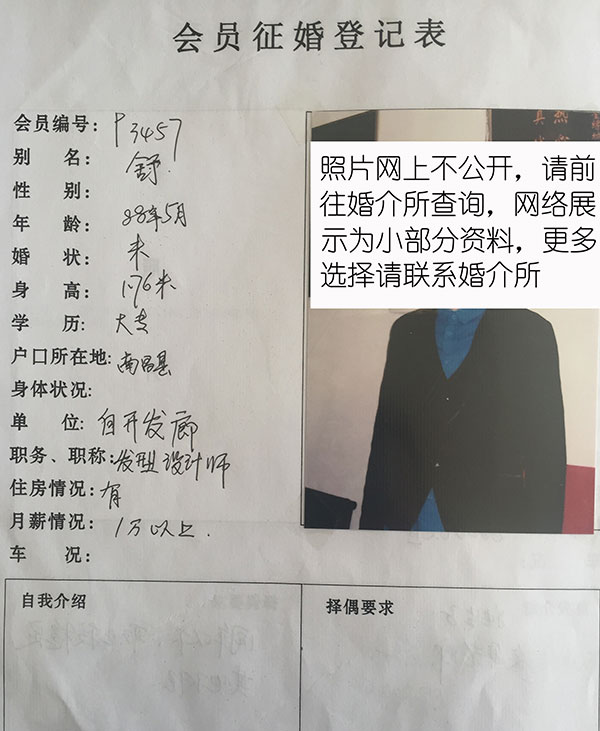 会员征婚登记表
会员编号: P3457
别 名: 舒
性 别:
年 龄: 88年5月
婚 状: 未
身 高: 1.76米
学 历: 大专
户口所在地: 南昌县
身体状况:
单 位: 自开发廊
职务、职称: 发型设计师
住房情况: 有
月薪情况: 1万以上.
车 况:
照片网上不公开，请前
往婚介所查询，网络展
示为小部分资料，更多
选择请联系婚介所
自我介绍
择偶要求